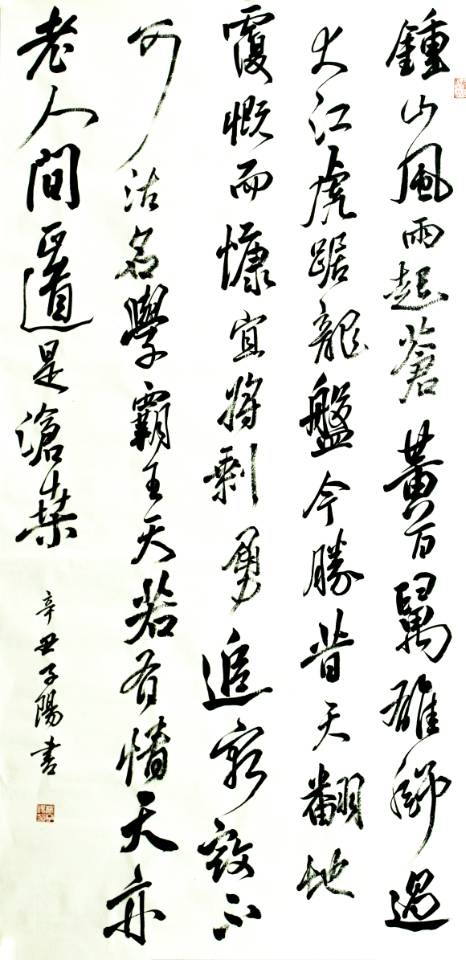 鍾山風雨起蒼黃百萬雄師過
大江虎踞龍盤今勝昔天翻地
覆慨而慷宜將剩勇追窮寇不
可沽名學霸王天若有情天亦
老人間正道是滄桑
辛丑子陽書